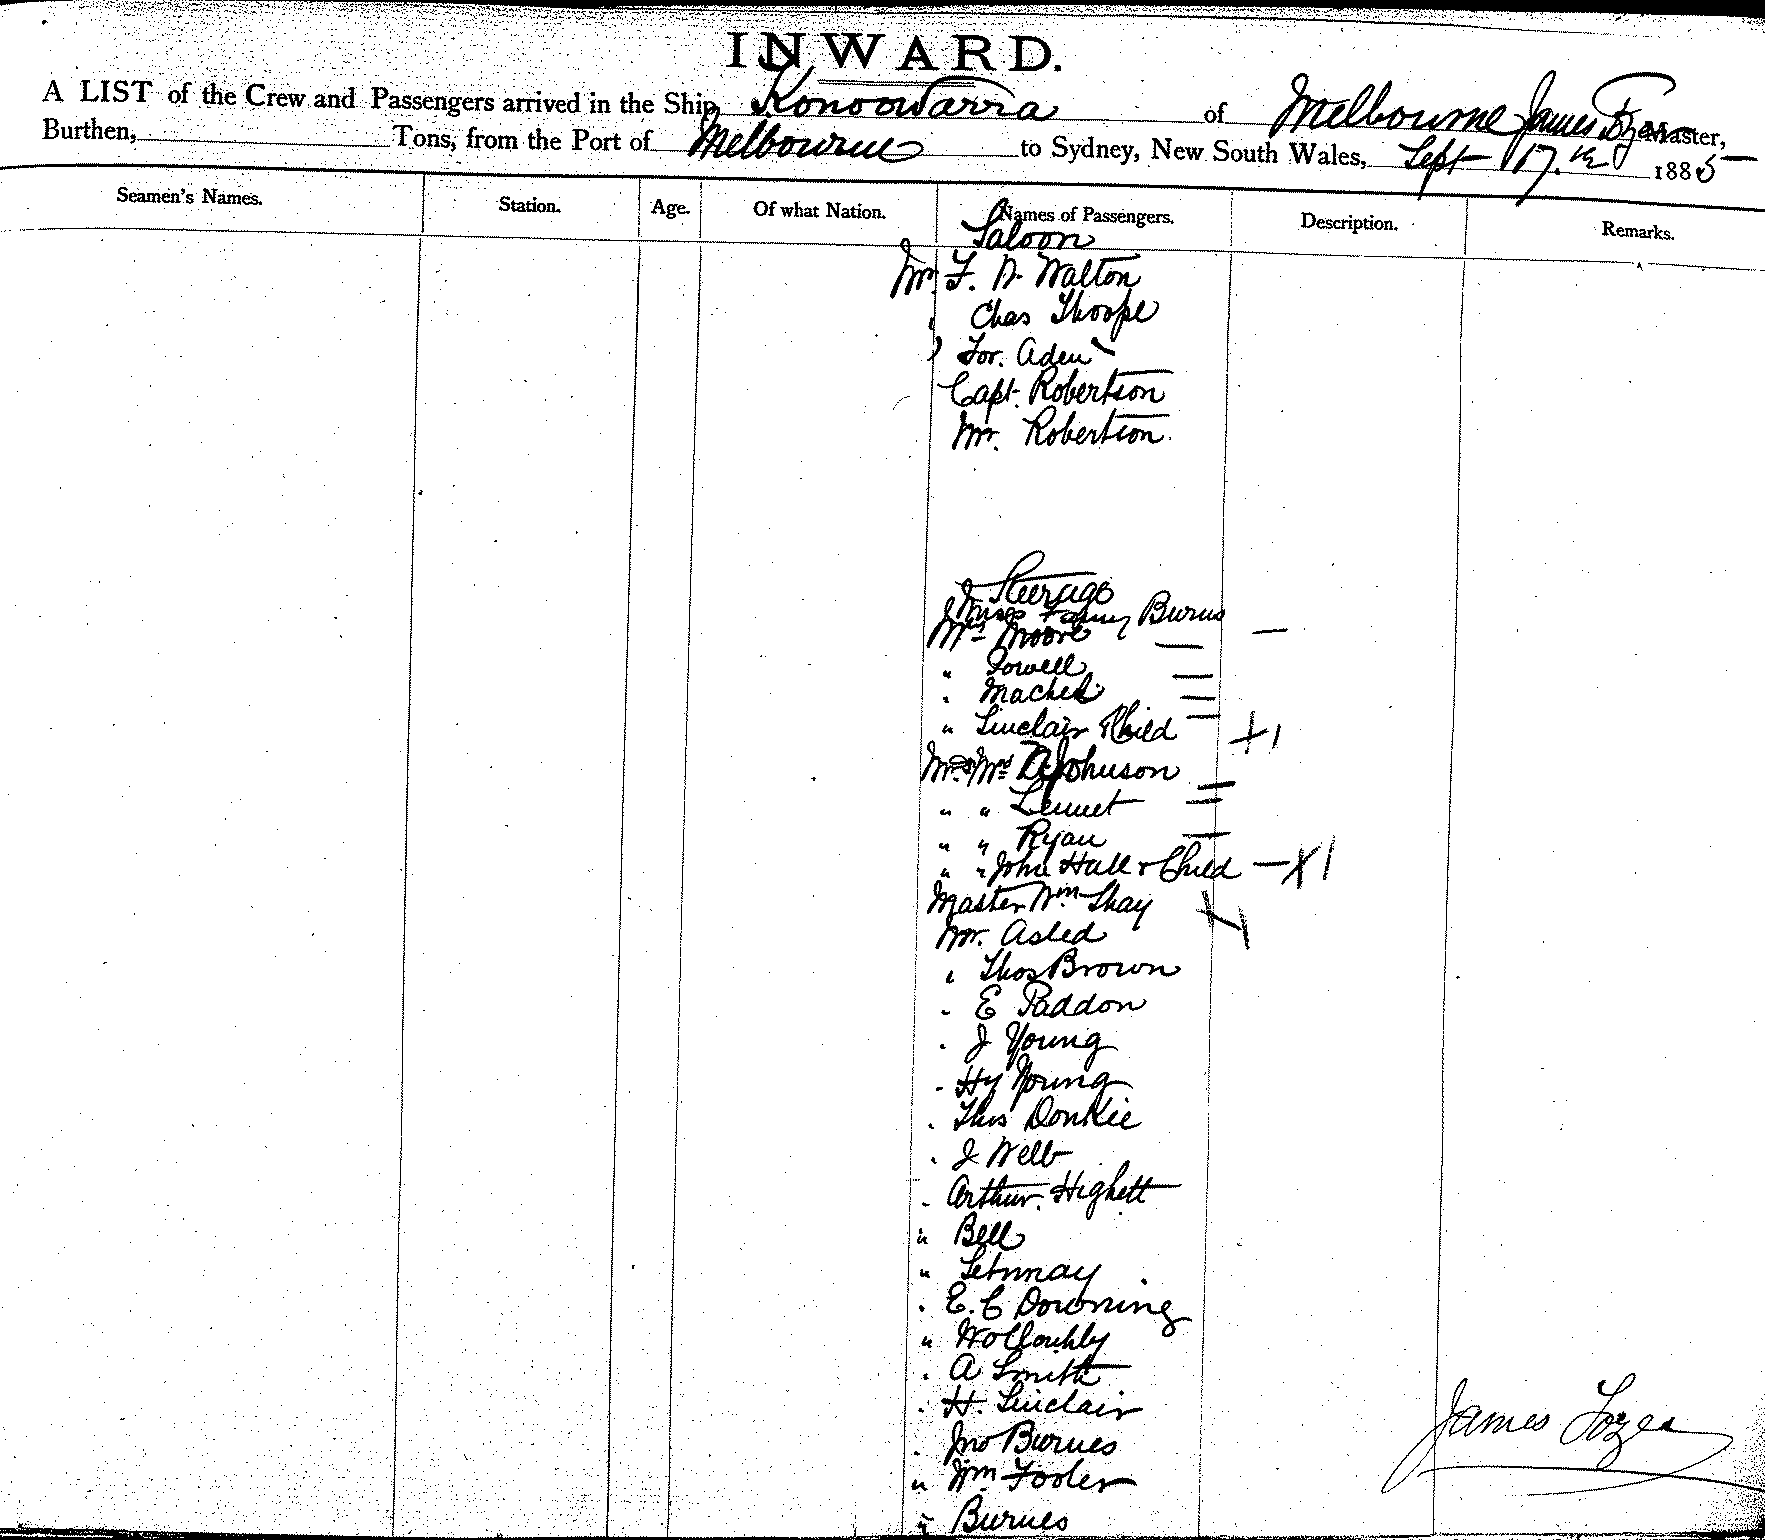 INWARD.
A LIST of the Crew and Passengers arrived in the Ship Konoowarra of Melbourne James Master,
Burthen, Tons, from the Port of Melbourne to Sydney, New South Wales, Sept 17.th 1885
Seamen's Names. Station. Age. Of what Nation. Names of Passengers. Description. Remarks.
Saloon
Mr. F. W. Walton
" Chas Thorpe
" Aden
Capt. Robertson
Mr. Robertson.
Steerage
Miss Fanny Burns
Mrs Moore
" Powell
" 
" Sinclair & Child
Mr & Mrs Johnson
" " Lennet
" " Ryan
" " John Hall & Child
Master Wm Shay
Mr. Asled
" Thos Brown
" E Paddon
" J Young
" Hy Young
" Thos Donkie
" J Webb
" Arthur Highett
" Bell
" 
" E. C Downing
" 
" A Smith
" H. Sinclair
" Jno Burnes
" Wm Fooler
" Burnes
James